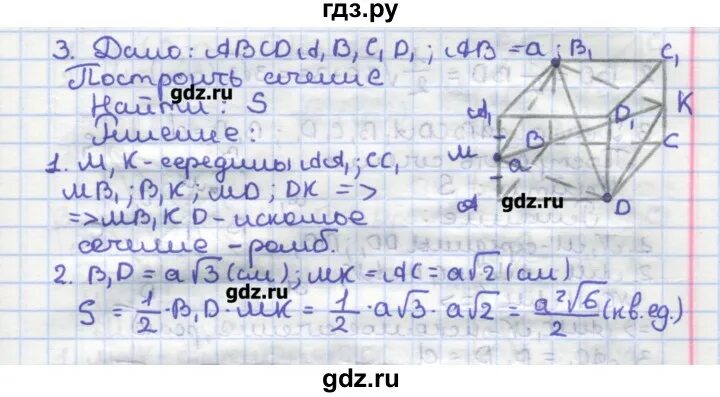 гдз.ру
3. Дано: ABCDA₁B₁C₁D₁; AB = a;
Построить сечение
gdz.ru
Найти: S
Решение:
1. M, K - середины AA₁; CC₁
MB₁; B₁K; MD; DK =>
=> MB₁KD - искомое
сечение - ромб.
2. B₁D = a√3 (см); MK = AC = a√2 (см)
gdz.ru
S = 1/2 · B₁D · MK = 1/2 · a√3 · a√2 = a²√6/2 (кв.ед.)
B₁ C₁
A₁ D₁ K
M B C
a
gdz.ru
A D
gdz.ru